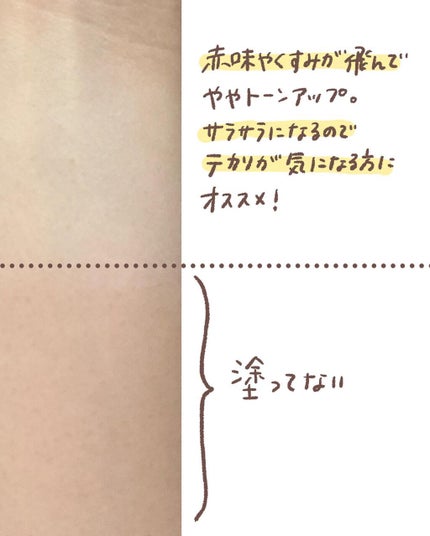 赤味やくすみが飛んで
ややトーンアップ。
サラサラになるので
テカリが気になる方に
オススメ!
塗ってない